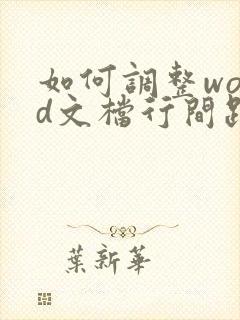 如何調整wo
d文檔行間
葉新華